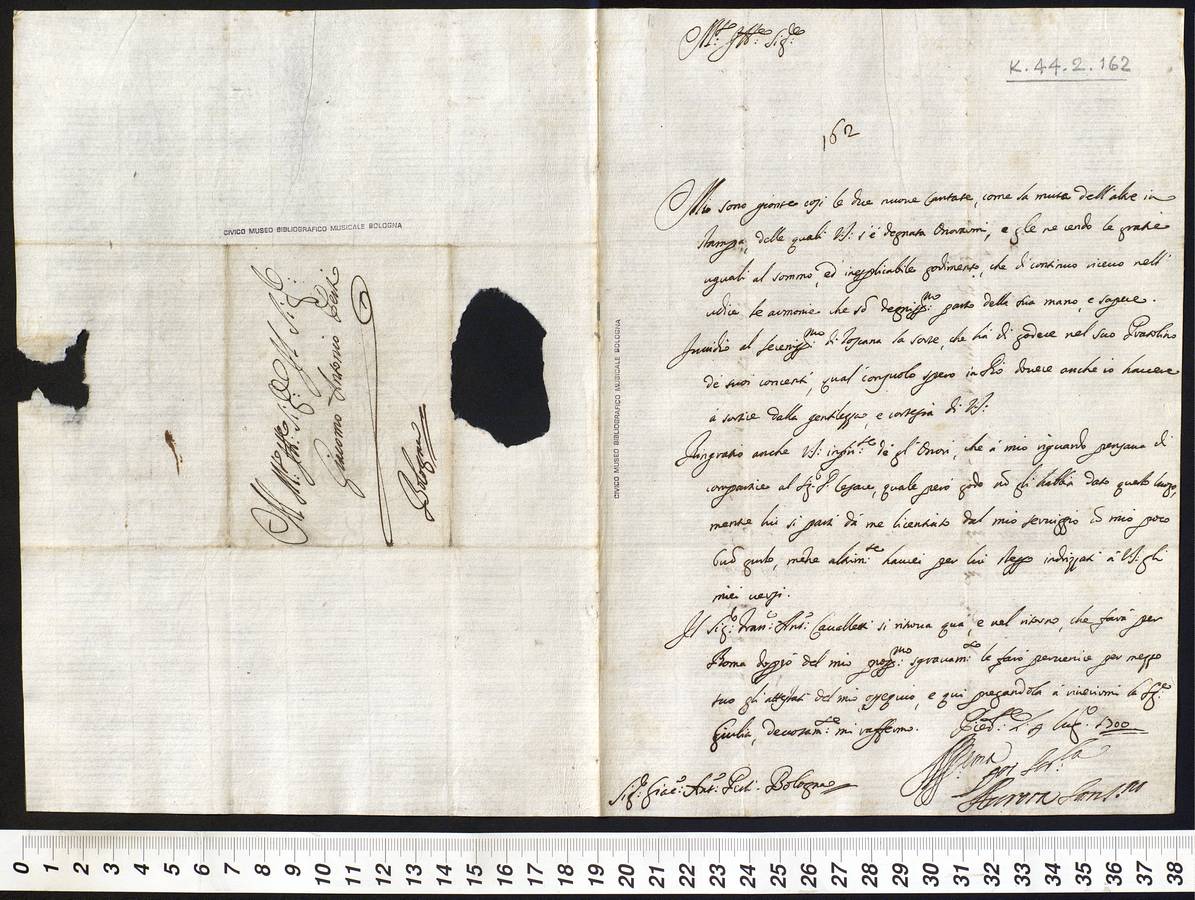 CIVICO MUSEO BIBLIOGRAFICO MUSICALE BOLOGNA
Giacomo Antonio Perti
Bologna
CIVICO MUSEO BIBLIOGRAFICO MUSICALE BOLOGNA
K.44.2.162
162
Mi sono gionte così le due nuove Cantate, come la muta dell'altre in
stampa, delle quali V.S: s'è degnata Onorarmi, e gle ne rendo le gratie
uguali al sommo, ed inesplicabile godimento, che di continuo ricevo nell'
udire le armonie che sō degniss:mo parto della sua mano, e sapere.
Invidio al Sereniss:mo di Toscana la sorte, che hà di godere nel suo Pratolino
de suoi concerti, qual consuolo spero in Dio dovere anche io havere
à sortire dalla gentilezza, e cortesia di V.S:
Ringratio anche V.S: infin:te de gl'Onori, che à mio riguardo pensava di
compartire al Sig:r Cesare, quale però godo nō gli habbia dato
mentre lui si partì dà me licentiato dal mio serviggio cō mio poco
buō gusto, mentre altrim:te haurei per lui stesso indrizzati à V.S: gli
miei versi.
Il Sig:r Fran:co Ant:o Cavalletti si ritrova quà, e nel ritorno, che farà per
Roma doppò del mio pross:mo sgravam:to le farò pervenire per mezzo
suo gli attestati del mio ossequio, e qui pregandola à riverirmi la Sig:ra
Giulia, devotam:te mi raffermo. Pied:te li 9 Lug:o 1700
Sig:r Giac:o Ant:o Perti - Bologna
Aurora Sans:no
0 1 2 3 4 5 6 7 8 9 10 11 12 13 14 15 16 17 18 19 20 21 22 23 24 25 26 27 28 29 30 31 32 33 34 35 36 37 38